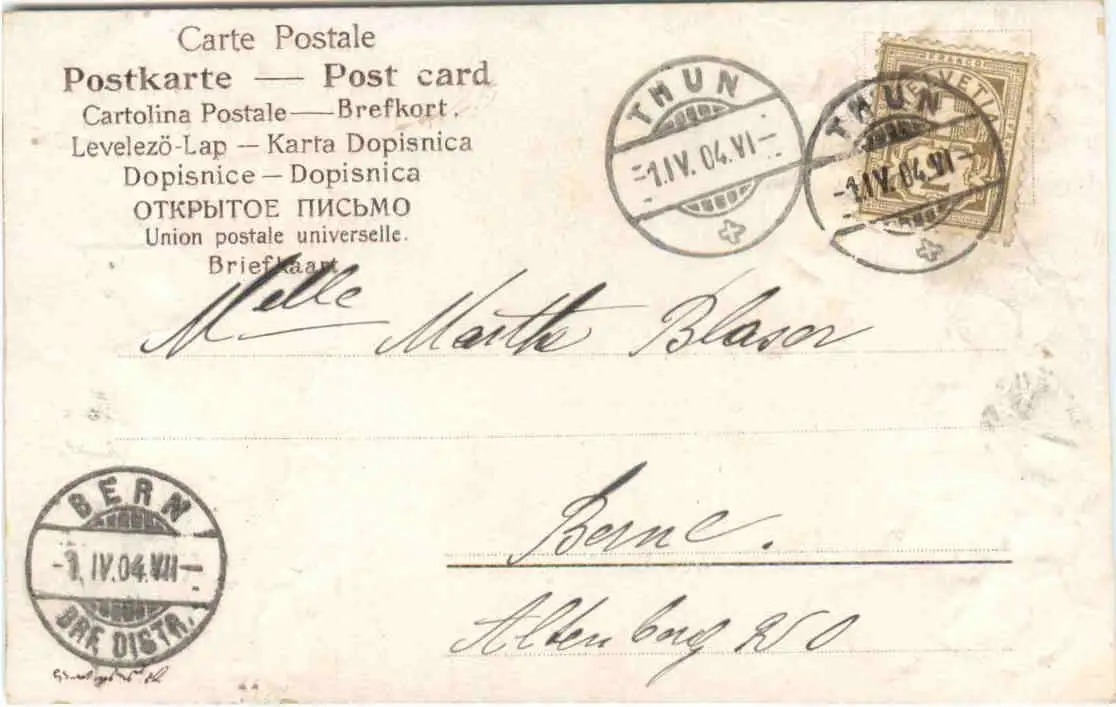 Carte Postale
Postkarte — Post card
Cartolina Postale — Brefkort.
Levelező-Lap — Karta Dopisnica
Dopisnice — Dopisnica
ОТКРЫТОЕ ПИСЬМО
Union postale universelle.
Briefkaart
THUN
-1.IV.04.VI-
THUN
-1.IV.04.VI-
FRANCO
HELVETIA
Melle Martha Blaser
Berne.
Altenberg
BERN
-1.IV.04.VII-
BRF. DISTR.